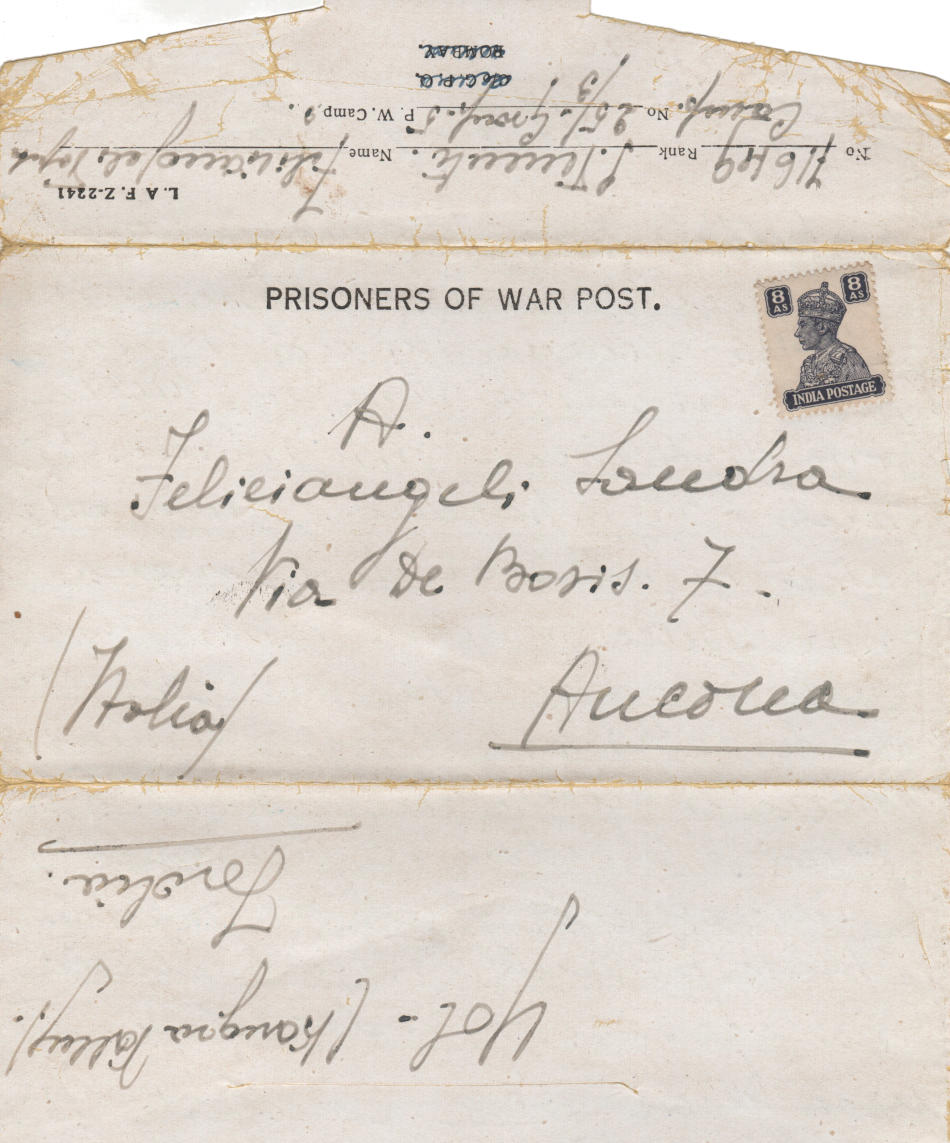 L. A F. Z-2241
No 71649 Rank S. Tenente. Name Feliciangeli
No 25/. Group. 5 P. W. Camp
Camp.
C/o G.P.O.
BOMBAY.
PRISONERS OF WAR POST.
8 AS 8 AS
INDIA POSTAGE
A.
Feliciangeli Sandra
Via De Bosis. 7.
Ancona
(Italia)
YOL - (Kangra Valley).
India.